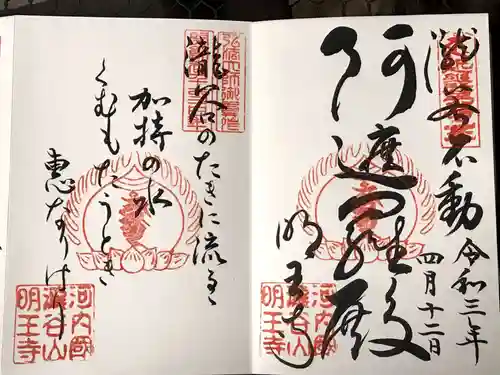 瀧谷不動
令和三年
四月十二日
阿遮羅殿
明王寺
瀧谷のたきに流るゝ
加持の水
くむもたうとき
恵なりけり
河内國
瀧谷山
明王寺
河内國
瀧谷山
明王寺